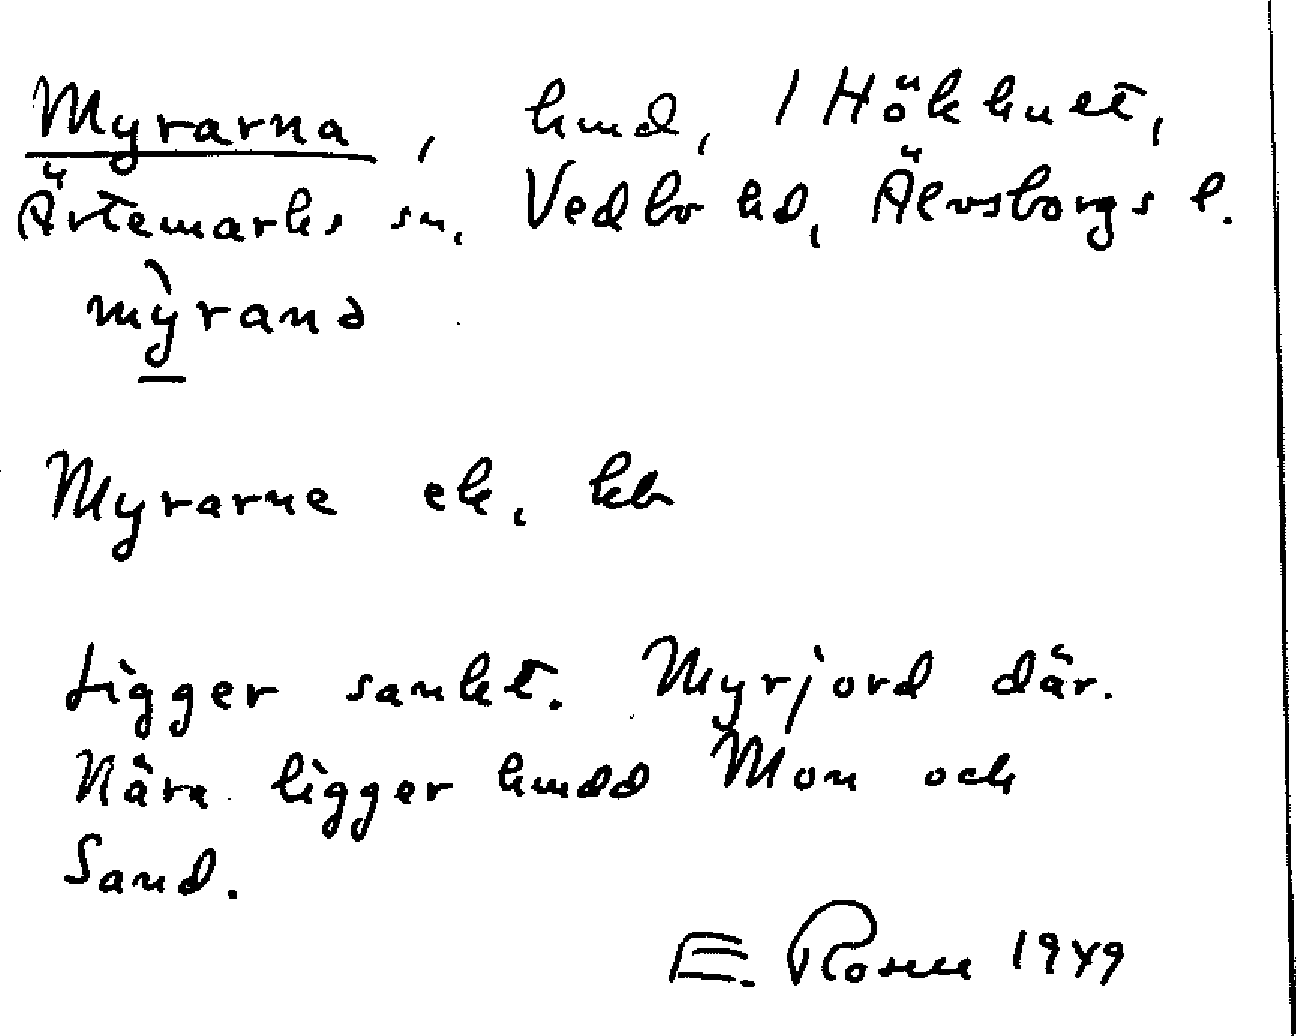 Myrarna, hmd, 1 Hökhult,
Ärtemarks sn. Vedbo hd, Älvsborgs l.
mỳranə
Myrarne ek. kb
Ligger sankt. Myrjord där.
Nära ligger hmdd Mon och
Sand.
E. Rosell 1949